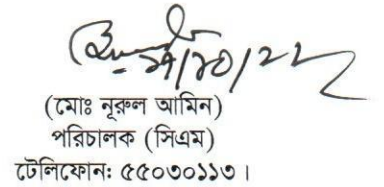 (মোঃ নূরুল আমিন)
পরিচালক (সিএম)
টেলিফোন: ৫৫০৩০১১৩।